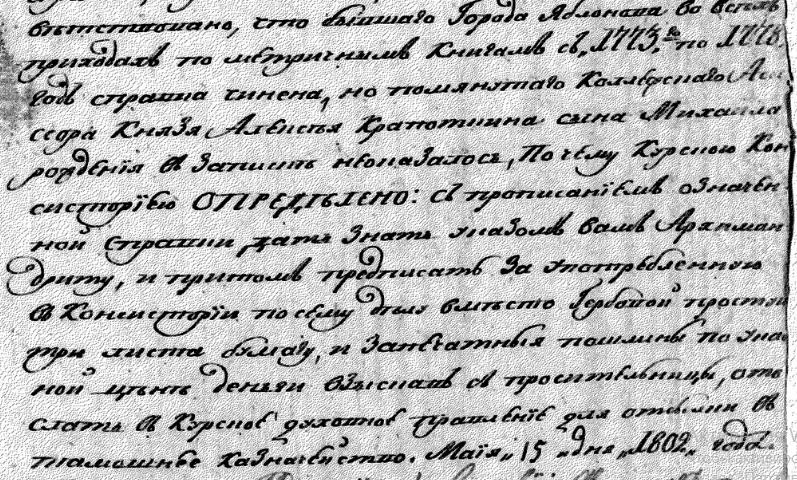 вѣтствовано, что бывшаго Города Яблонова во всѣхъ
приходахъ по метричнымъ книгамъ съ „1773„го по 1778.
годъ справка чинена, но помянутаго Коллежскаго Асе
ссора Князя Алексѣя Крапоткина сына Михаила
рождения въ записить неоказалось, Почему Курскою Кон
систоріею ОПРЕДѢЛЕНО: съ прописаніемъ означен
ной справки дать знать указомъ вамъ Архиман
дриту, и притомъ предписать за употребленную
въ Консисторіи по сему дѣлу вмѣсто Гербовой простой
три листа бумагу, и запечатныя пошлины по указ
ной цѣнѣ деньги взыскавъ съ просительницы, ото
слать въ Курское духовное правленіе для отсылки въ
тамошнее казначейство. Маія „15„ дня „1802„ года.